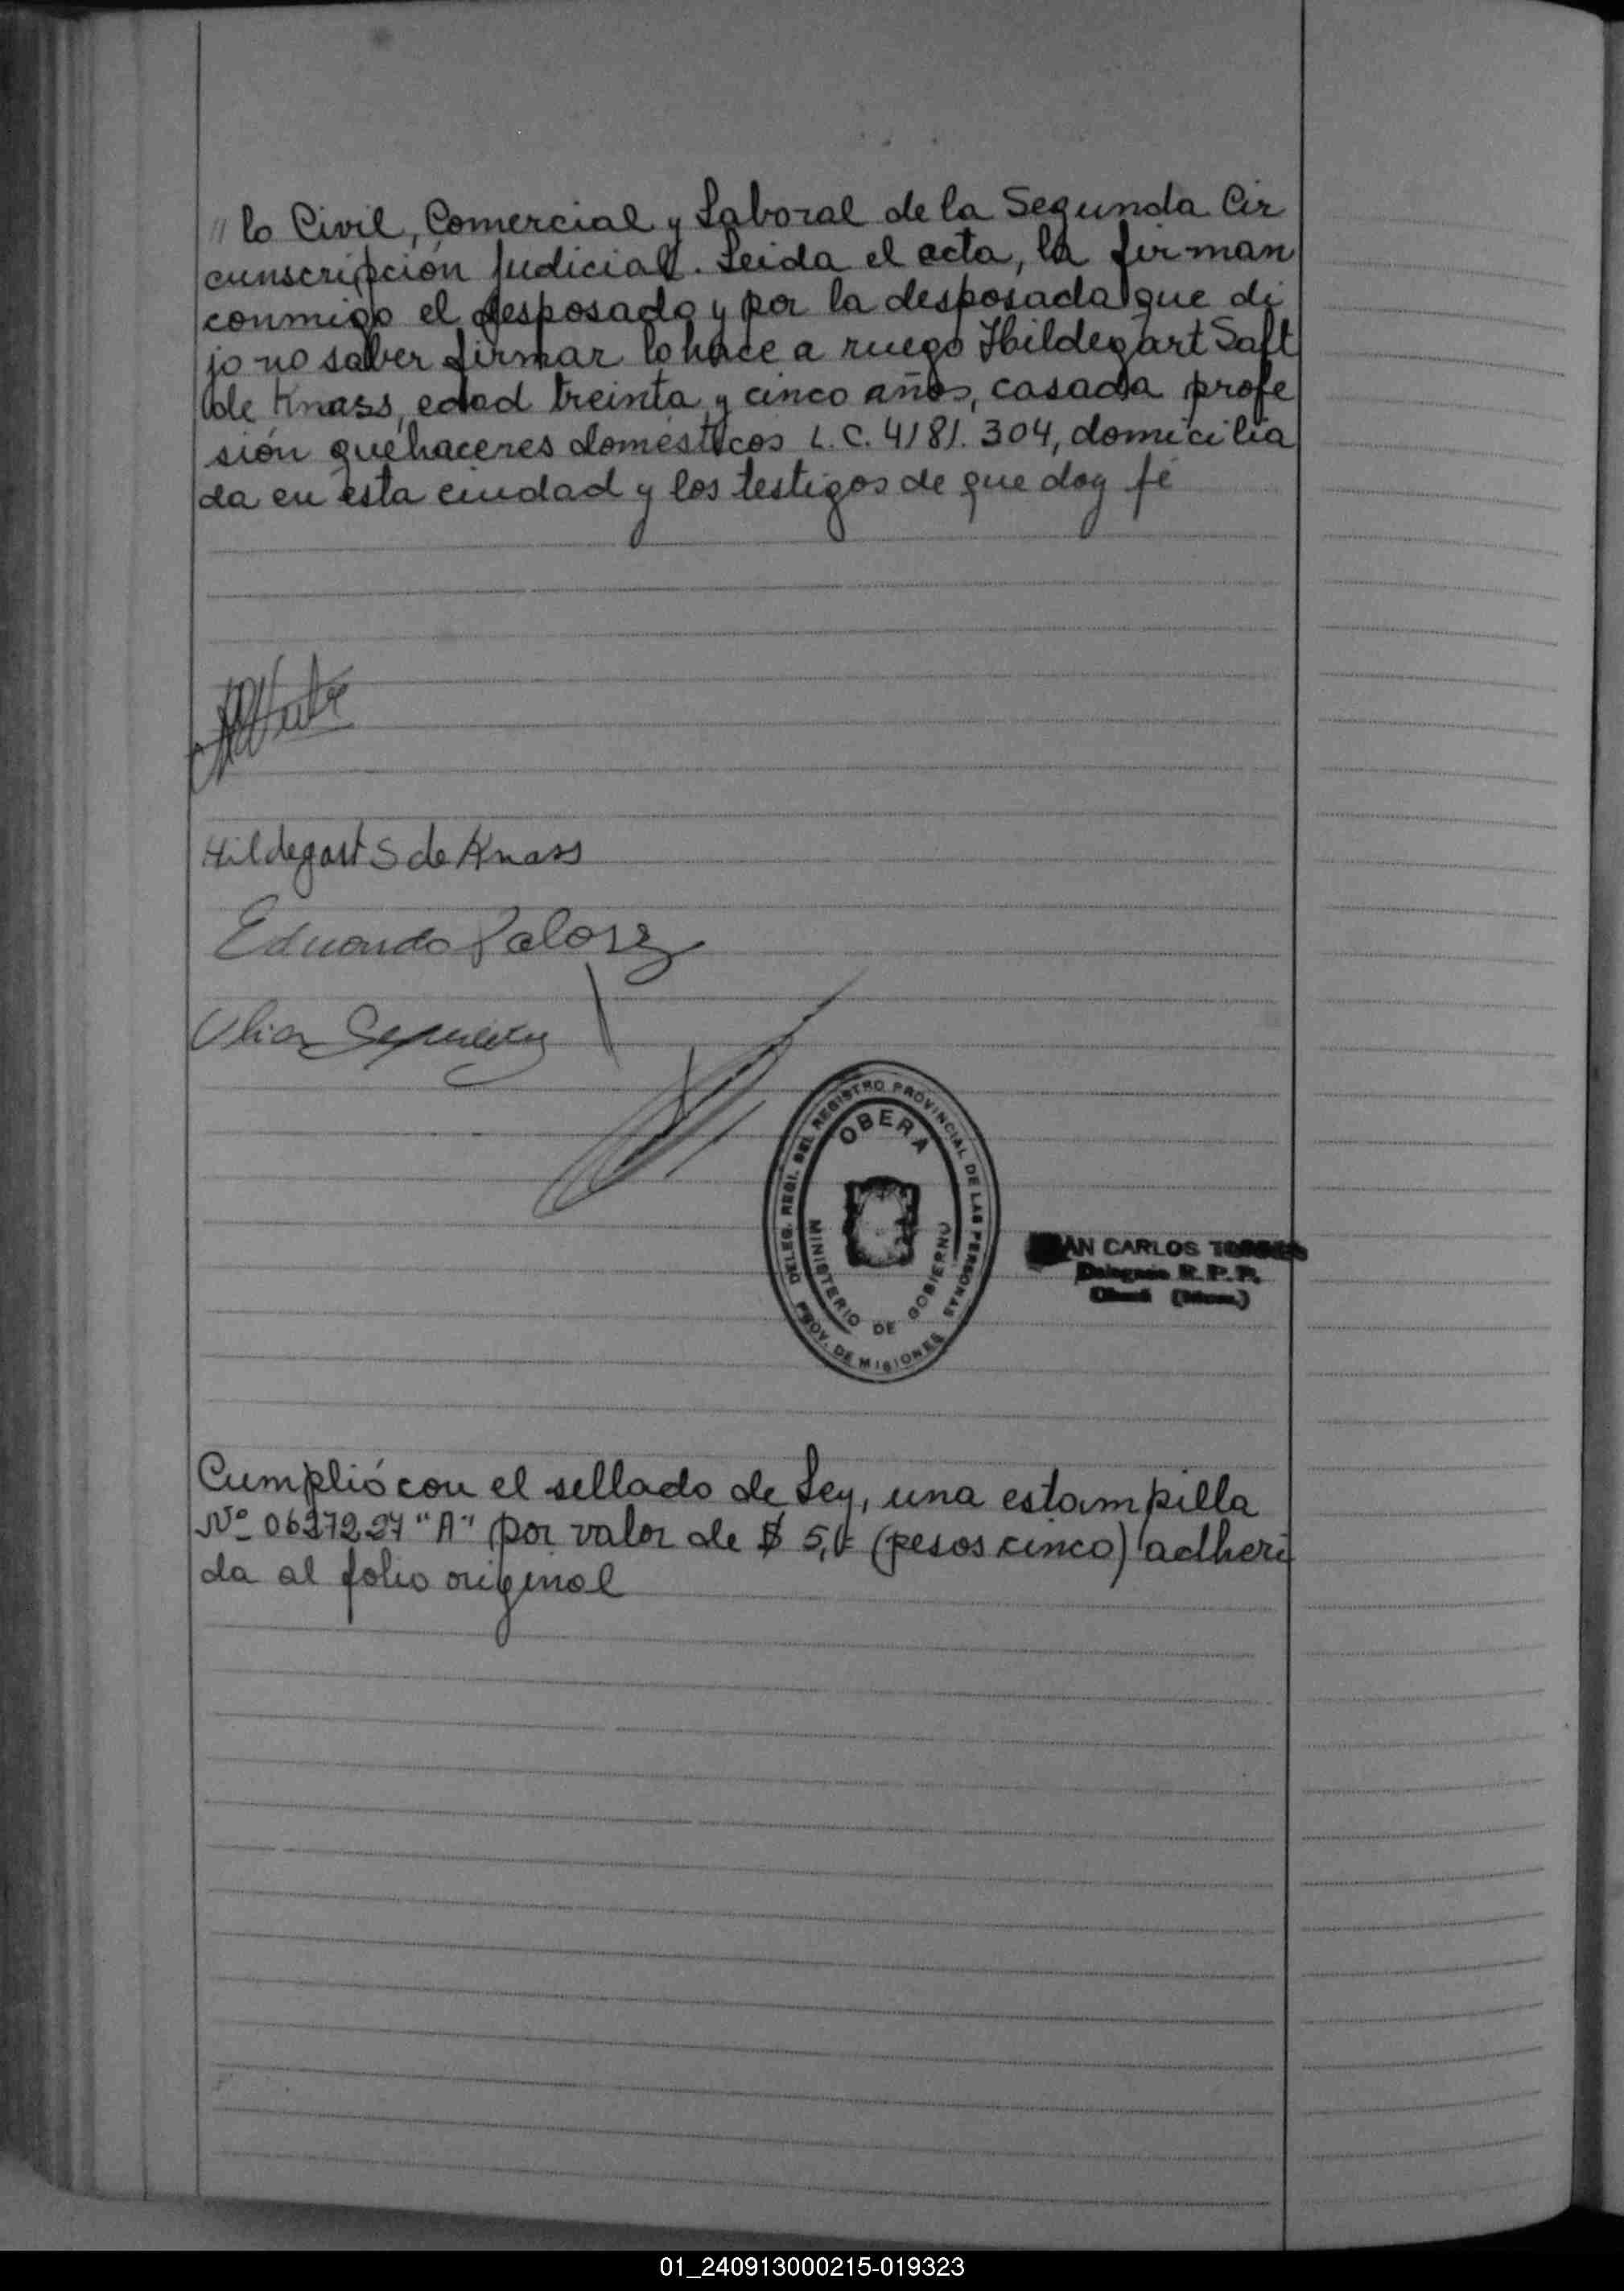 " lo Civil, Comercial y Laboral de la Segunda Cir
cunscripción Judicial. Leida el acta, la firman
conmigo el desposado y por la desposada que di
jo no saber firmar lo hace a ruego Hildegart Saft
de Knass, edad treinta y cinco años, casada profe
sión quehaceres domésticos L.C. 4181.304, domicilia
da en esta ciudad y los testigos de que doy fé
Hildegart S de Knass
Eduardo
DELEG. REGI. DEL REGISTRO PROVINCIAL DE LAS PERSONAS
OBERA
MINISTERIO DE GOBIERNO
PROV. DE MISIONES
AN CARLOS
R. P. P.
Cumplió con el sellado de Ley, una estampilla
Nº "A" por valor de $ 5,- (pesos cinco) adheri
da al folio original
01_240913000215-019323